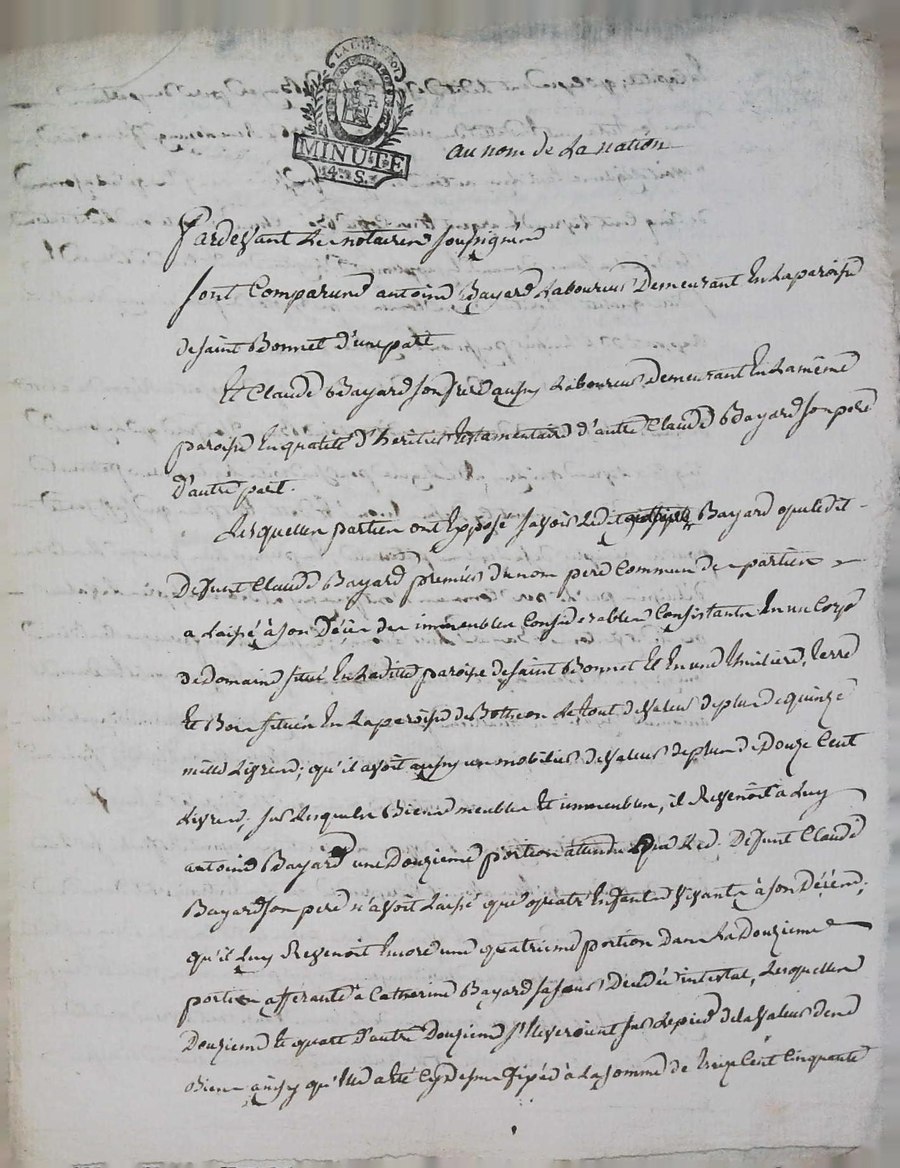 LA LOI ET LE ROI
MINUTE
4. S.
au nom de La nation
Pardevant Le notaire soussigné
sont Comparus antoine Bayard Laboureur Demeurant En La paroisse
de saint Bonnet d'une part
Et Claude Bayard son frere aussy Laboureur demeurant En La même
paroisse En qualité d'heritier testamentaire d'autre Claude Bayard son pere
d'autre part.
Lesquelles parties ont Exposé savoir Ledit Bayard que Ledit
Defunt Claude Bayard premier du nom pere Commun des parties
a Laissé à son Décès des immeubles Considerables Consistants En un Corps
de Domaine situé En Laditte paroisse de saint Bonnet Et En une terre
Et Bois situés En La paroisse de Botheon Le tout de valeur de plus de quinze
mille Livres; qu'il avoit aussy un mobilier de valeur de plus de Douze Cent
Livres, sur Lesquels Biens meubles Et immeubles, il Revenoit a Luy
antoine Bayard une Douzieme portion attendu que Led. Defunt Claude
Bayard son pere n'avoit Laissé que quatre Enfants vivants à son Décès;
qu'il Luy Revenoit Encore une quatrieme portion Dans La Douzieme
portion afferante a Catherine Bayard sa sœur Decedée intestat, Lesquelles
Douzieme Et quart d'autre Douzieme s'Eleveroient sur Le pied de La valeur des
Biens ainsy qu'Elle a Eté Cy dessus fixée à La somme de treize Cent Cinquante